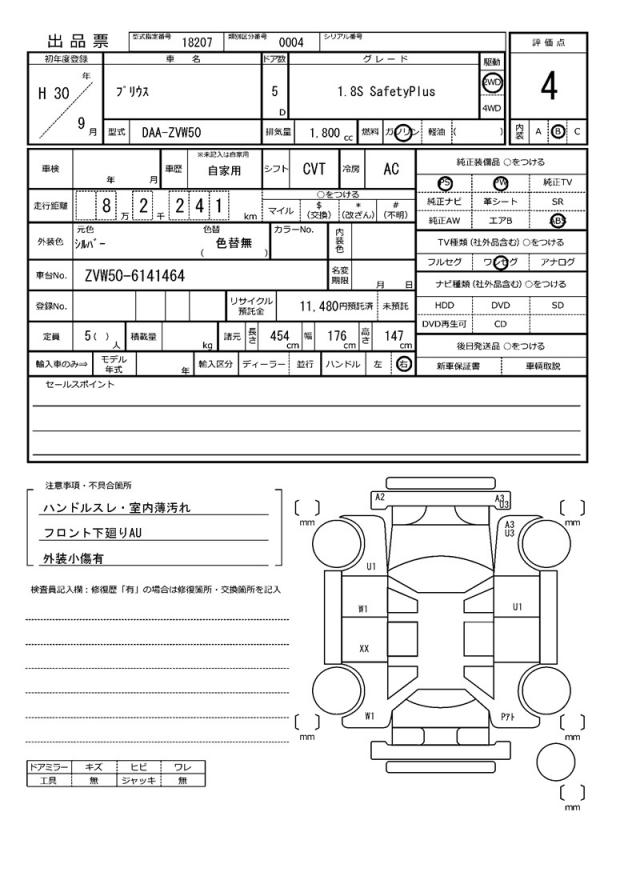 出品票 型式指定番号 18207 類別区分番号 0004 シリアル番号
初年度登録 車名 ドア数 グレード 駆動 評価点
H 30 年 9 月 プリウス 5 D 1.8S SafetyPlus 2WD 4WD 4
型式 DAA-ZVW50 排気量 1,800 cc 燃料 ガソリン 軽油 ( ) 内装 A B C
車検 年 月 車歴 ※未記入は自家用 自家用 シフト CVT 冷房 AC
走行距離 8 万 2 千 2 4 1 km ○をつける
マイル $ (交換) * (改ざん) # (不明)
外装色 元色 シルバー 色替 色替無 ( ) カラーNo. 内装色
車台No. ZVW50-6141464 名変期限 月 日
登録No. リサイクル預託金 11,480円預託済 未預託
定員 5( ) 人 積載量 kg 諸元 長さ 454 cm 幅 176 cm 高さ 147 cm
輸入車のみ⇒ モデル年式 年 輸入区分 ディーラー 並行 ハンドル 左 右
純正装備品 ○をつける
PS PW 純正TV
純正ナビ 革シート SR
純正AW エアB ABS
TV種類(社外品含む)○をつける
フルセグ ワンセグ アナログ
ナビ種類(社外品含む)○をつける
HDD DVD SD
DVD再生可 CD
後日発送品 ○をつける
新車保証書 車輌取説
セールスポイント
注意事項・不具合箇所
ハンドルスレ・室内薄汚れ
フロント下廻りAU
外装小傷有
検査員記入欄：修復歴「有」の場合は修復箇所・交換箇所を記入
ドアミラー キズ ヒビ ワレ
工具 無 ジャッキ 無
A2 A3 U3
[ ] mm [ ] mm
A3 U3
U1
W1 U1
XX
W1 Pアト
[ ] mm [ ] mm
[ ] mm